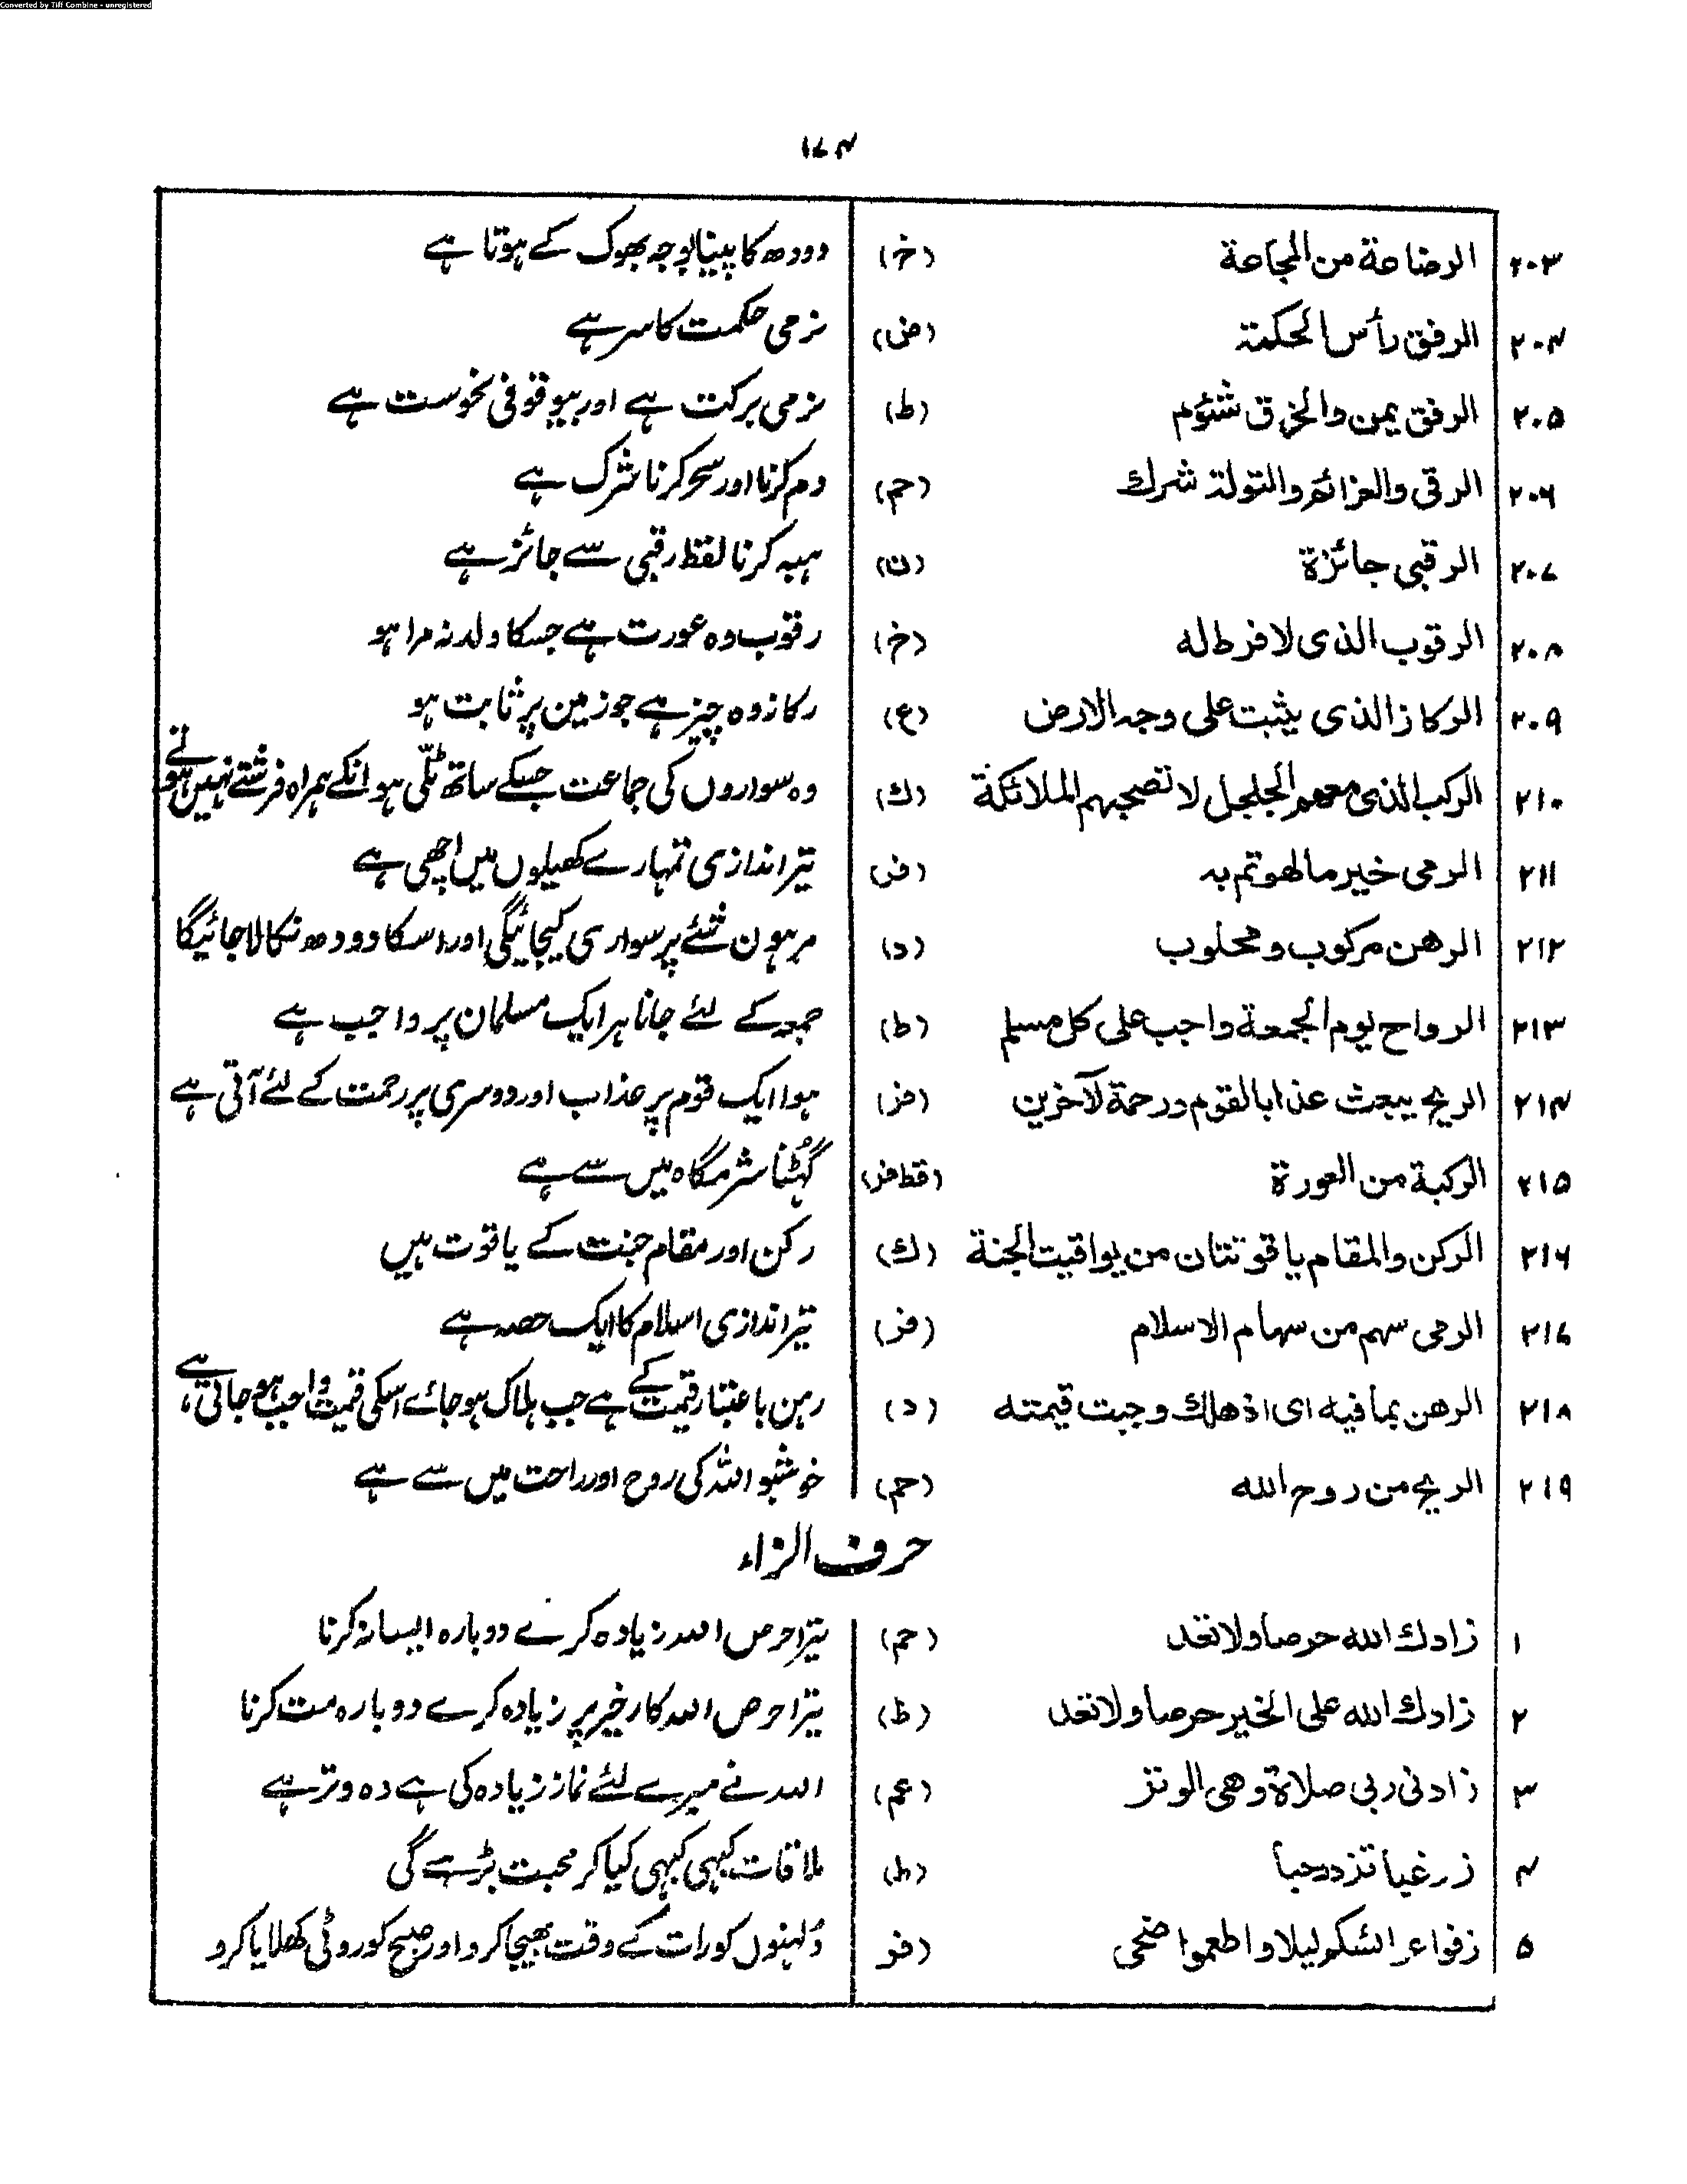 Converted by Tiff Combine - unregistered
۱۷۴
۲۰۳ الرضاعة من المجاعة (خ) دودھ کا پینا بوجہ بھوک کے ہوتا ہے
۲۰۴ الرفق رأس الحکمة (ض) نرمی حکمت کا سر ہے
۲۰۵ الرفق یمن والخرق شئوم (ط) نرمی برکت ہے اور بیوقوفی نحوست ہے
۲۰۶ الرقی والعزائم والتولة شرك (حم) دم کرنا اور سحر کرنا شرک ہے
۲۰۷ الرقبی جائزة (ن) ہبہ کرنا لفظ رقبی سے جائز ہے
۲۰۸ الرقوب الذی لا فرط له (خ) رقوب وہ عورت ہے جسکا ولد نہ مرا ہو
۲۰۹ الرکاز الذی یثبت علی وجه الارض (ع) رکاز وہ چیز ہے جو زمین پر ثابت ہو
۲۱۰ الرکب الذی معهم الجلجل لا تصحبهم الملائکة (ك) وہ سواروں کی جماعت جسکے ساتھ ٹلّی ہو انکے ہمراہ فرشتے نہیں ہوتے
۲۱۱ الرمی خیر ما لهوتم به (فر) تیراندازی تمہارے کھیلوں میں اچھی ہے
۲۱۲ الرهن مرکوب ومحلوب (د) مرہون شئے پر سواری کیجائیگی اور اسکا دودھ نکالا جائیگا
۲۱۳ الرواح یوم الجمعة واجب علی کل مسلم (ط) جمعہ کے لئے جانا ہر ایک مسلمان پر واجب ہے
۲۱۴ الریح یبعث عذابا لقوم ورحمة لآخرین (فر) ہوا ایک قوم پر عذاب اور دوسری پر رحمت کے لئے آتی ہے
۲۱۵ الرکبة من العورة (قط فر) گہُٹنا شرمگاہ میں سے ہے
۲۱۶ الرکن والمقام یاقوتتان من یواقیت الجنة (ك) رکن اور مقام جنت کے یاقوت ہیں
۲۱۷ الرمی سهم من سهام الاسلام (فر) تیراندازی اسلام کا ایک حصہ ہے
۲۱۸ الرهن بمافیه ای اذ هلك وجبت قیمته (د) رہن باعتبار قیمت کے ہے جب ہلاک ہو جائے اسکی قیمت واجب ہو جاتی ہے
۲۱۹ الریح من روح الله (حم) خوشبو اللہ کی روح اور راحت میں سے ہے
حرف الزاء
۱ زادك الله حرصا ولا تعد (حم) تیرا حرص اللہ زیادہ کرے دوبارہ ایسا نہ کرنا
۲ زادك الله علی الخیر حرصا ولا تعد (ط) تیرا حرص اللہ کار خیر پر زیادہ کرے دوبارہ مت کرنا
۳ زادنی ربی صلاة وهی الوتر (عم) اللہ نے میرے لئے نماز زیادہ کی ہے وہ وتر ہے
۴ زر غبا تزدد حبا (ط) ملاقات کبہی کبہی کیا کر محبت بڑہے گی
۵ زفوا عرائسکم لیلا واطعموا ضحی (فر دُلہنوں کو رات کے وقت بھیجا کرو اور صبح کو روٹی کھلایا کرو